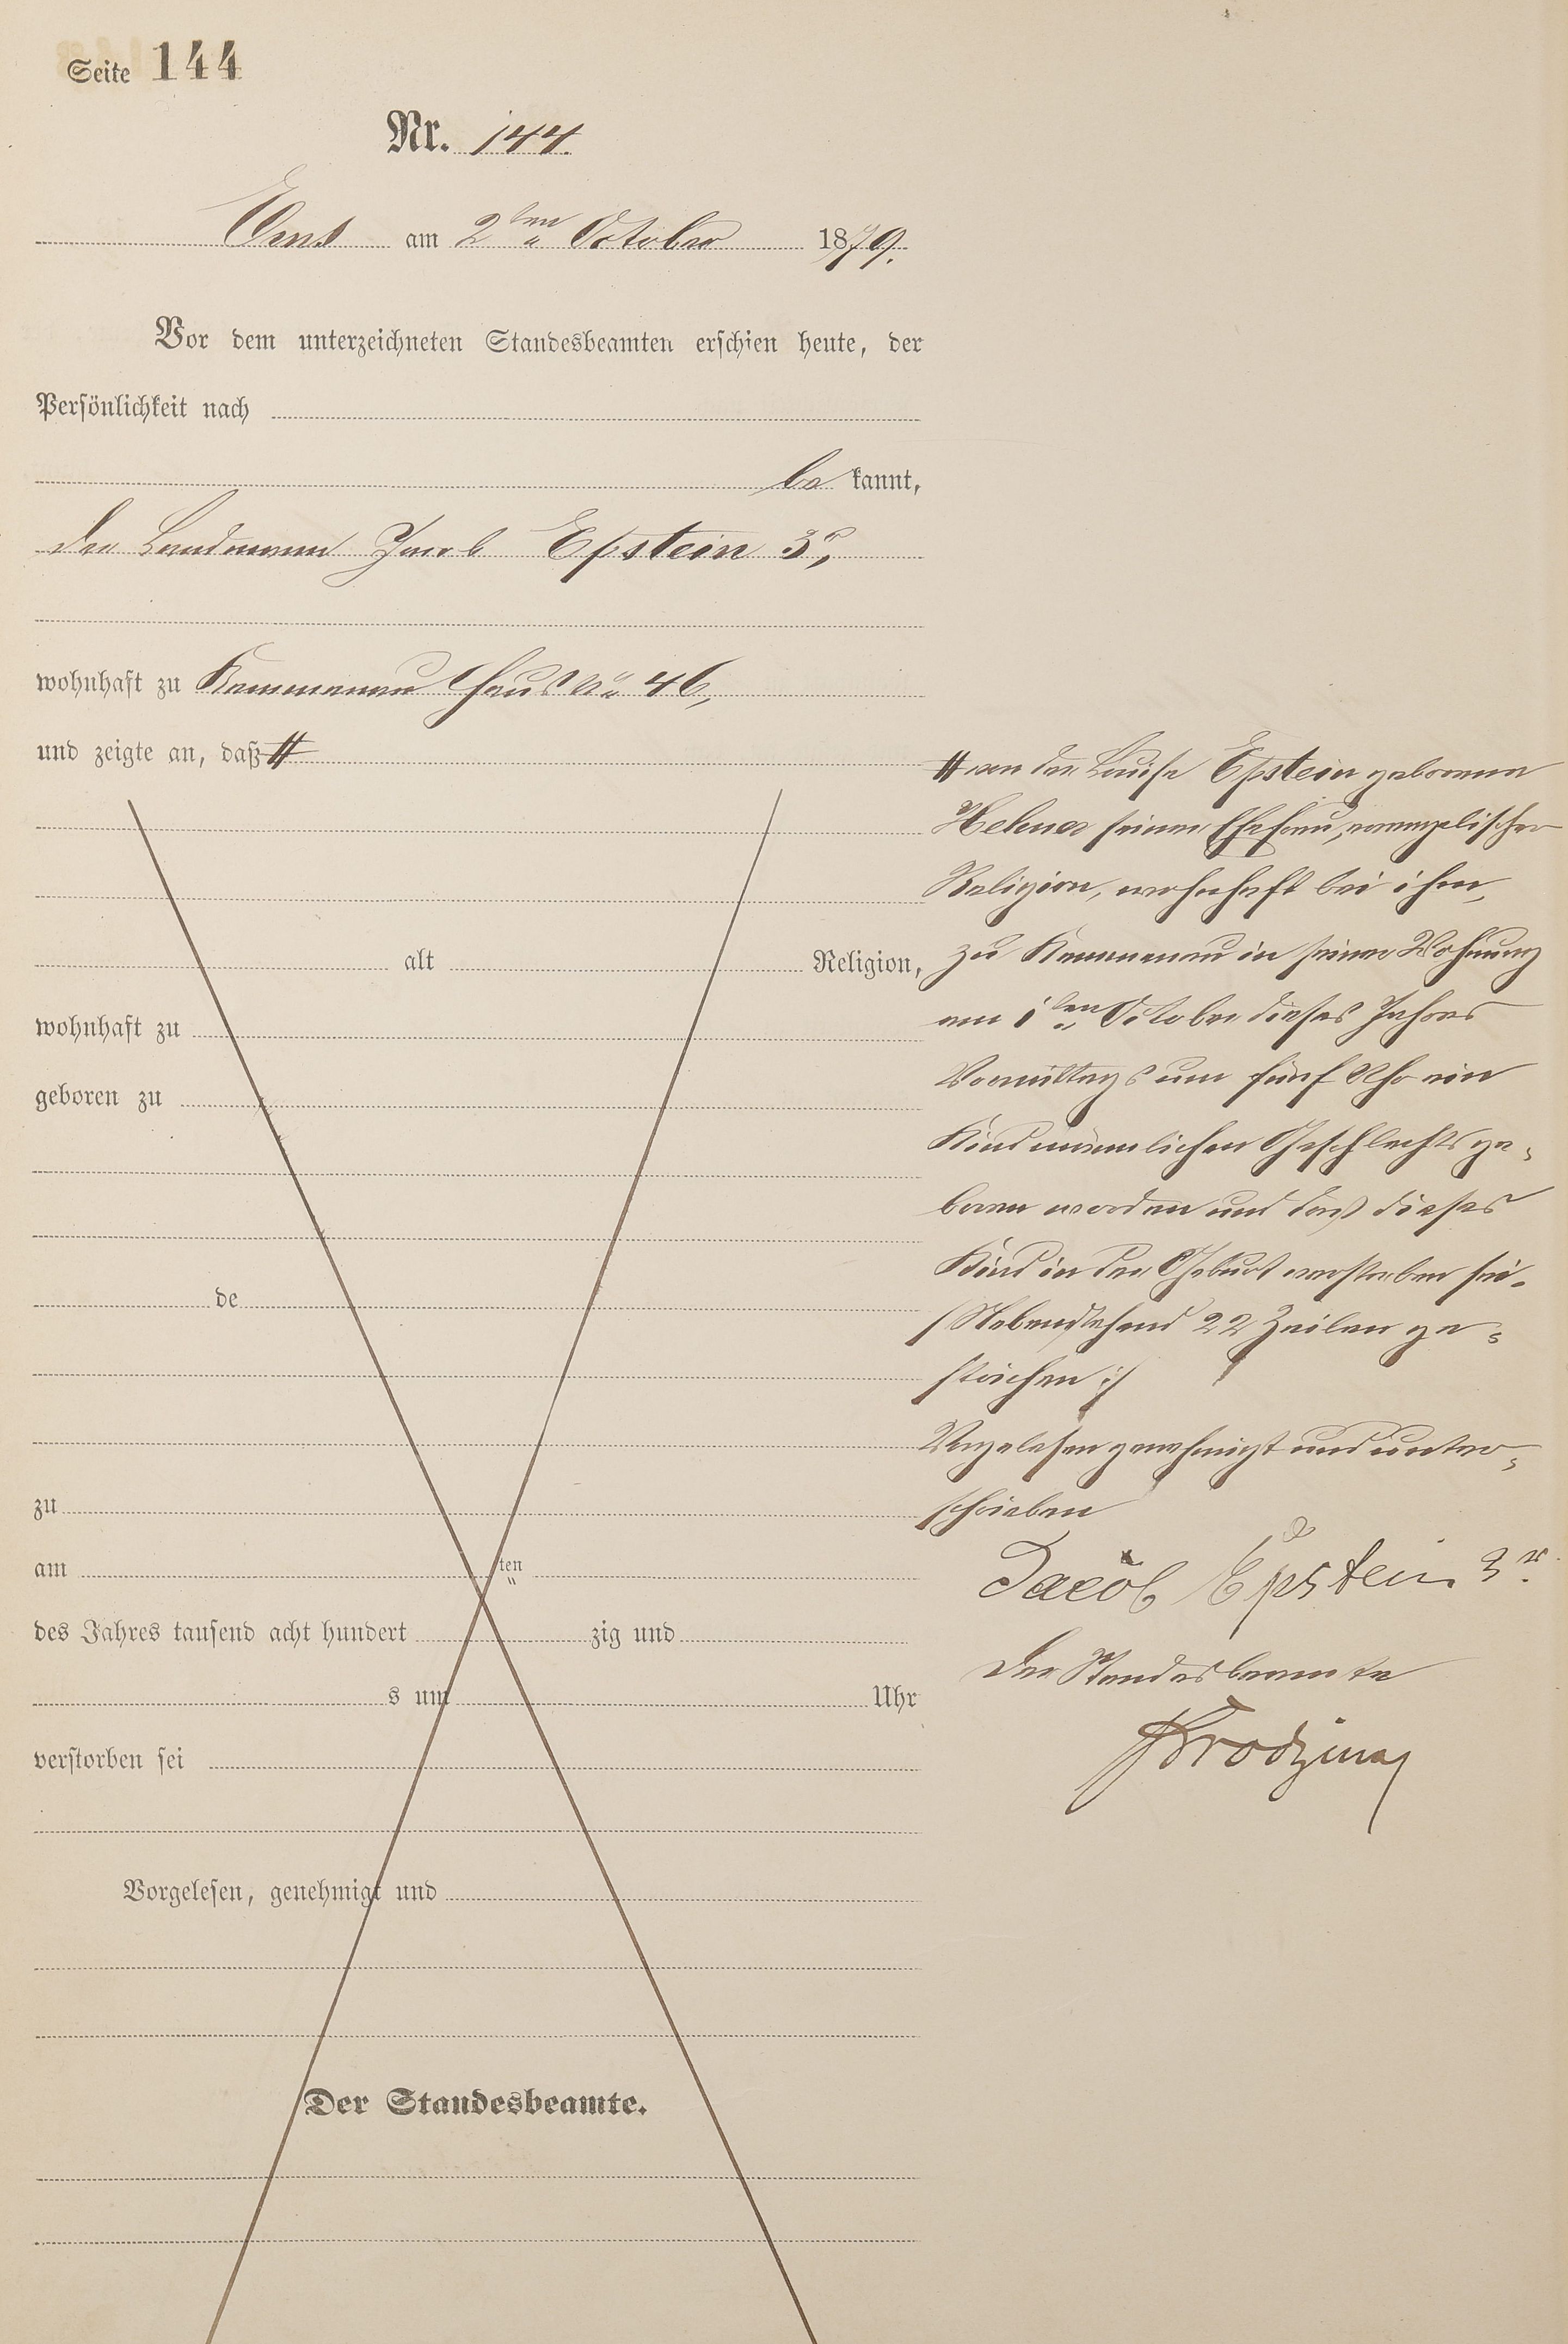 Seite 144
Nr. 144.
Ems am 2ten October 1879.
Vor dem unterzeichneten Standesbeamten erschien heute, der
Persönlichkeit nach
be kannt,
der Landmann Jacob Epstein 3r,
wohnhaft zu Kemmenau Haus No 46,
und zeigte an, daß #
alt Religion,
wohnhaft zu
geboren zu
de
zu
am ten
des Jahres tausend acht hundert zig und
s um Uhr
verstorben sei
Vorgelesen, genehmigt und
Der Standesbeamte.
# von der Louise Epstein geborenen
seiner Ehefrau, evangelischer
Religion, wohnhaft bei ihm,
zu Kemmenau in seiner Wohnung
am 1ten October dieses Jahres
Vormittags um fünf Uhr ein
Kind männlichen Geschlechts ge-
boren worden und daß dieses
Kind in der Geburt verstorben sei.
/Nebenstehend 22 Zeilen ge-
strichen :/
Vorgelesen genehmigt und unter-
schrieben
Jacob Epstein 3r.
Der Standesbeamte